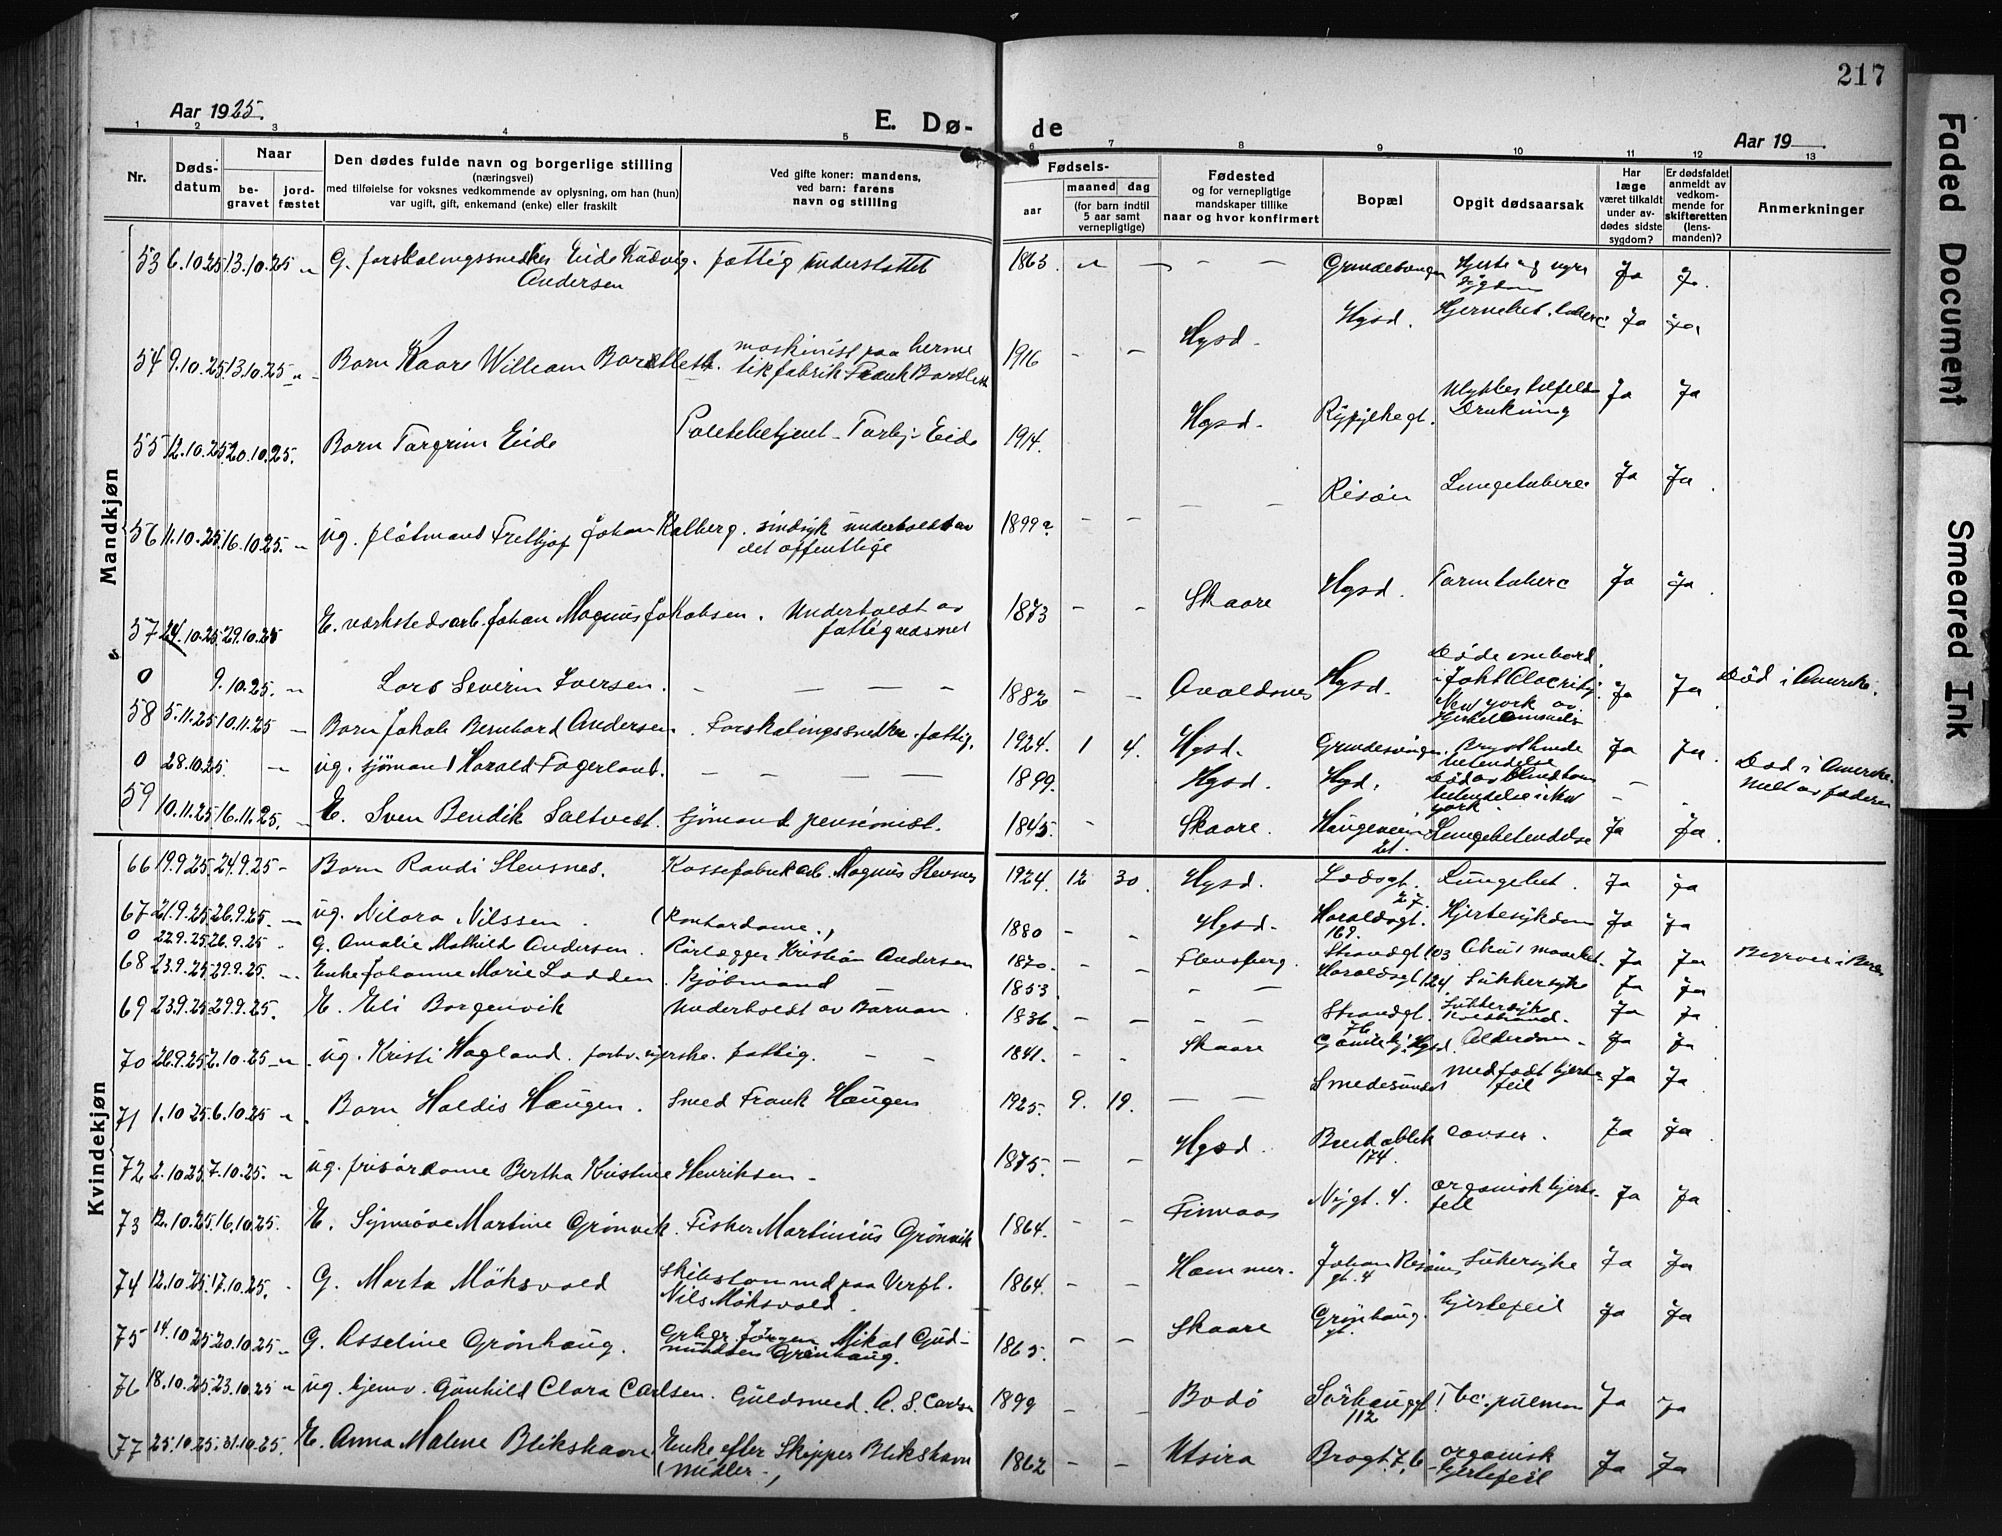 217
Aar 1925.
E. Dø-
de
Aar 19
Nr.
Døds-
datum
Naar
be-
gravet
jord-
fæstet
Den dødes fulde navn og borgerlige stilling
(næringsvei)
med tilføielse for voksnes vedkommende av oplysning, om han (hun)
var ugift, gift, enkemand (enke) eller fraskilt
Ved gifte koner: mandens,
ved barn: farens
navn og stilling
Fødsels-
aar
maaned
dag
(for barn indtil
5 aar samt
vernepligtige)
Fødested
og for vernepligtige
mandskaper tillike
naar og hvor konfirmert
Bopæl
Opgit dødsaarsak
Har
læge
været tilkaldt
under av-
dødes sidste
sygdom?
Er dødsfaldet
anmeldt av
vedkom-
mende for
skifteretten
(lens-
manden)?
Anmerkninger
Mandkjøn
53 6.10.25 13.10.25 G. forskalingssnedker Eide Ludvig Andersen fattig understøttet 1863 Ja Ja.
54 9.10.25 13.10.25 Barn Kaare William Bartlett. maskinist paa herme
tikfabrik Frank Bartlett 1916 – – Hgsd. Hgsd. Ja Ja
55 12.10.25 20.10.25. Barn Torgrim Eide Politibetjent Torbj. Eide 1914. Hgsd. Ulykkestilfelde
Drukning Ja Ja
56 11.10.25 16.10.25. ug. Fritjof Johan Kalberg. sindsyk underholdt av
det offentlige 1899 – – Risøen Lungetuberc Ja Ja
57 24.10.25 29.10.25 E. værkstedsarb. Johan Magnus Jakobsen. Underholdt av
fattigvæsnet 1873 – – Skaare Hgsd. Tarmtuberc Ja Ja
0 9.10.25. Lars Severin Iversen. – – – – 1882 – – Avaldsnes Hgsd. Døde ombord
i New York av Ja Ja Død i Amerika.
58 5.11.25 10.11.25 Barn Jakob Bernhard Andersen. Forskalingssnedker. fattig. 1924. 1 4. Hgsd. Brysthinde
betendelse Ja Ja
0 28.10.25. ug. sjømand Harald Fagerland. – – – – 1899. Hgsd. Hgsd. Død av Blindtarm
betendelse i New
York. – Død i Amerika.
Melt av faderen
59 10.11.25 16.11.25. E. Sven Bendik Saltvedt. sjømand pensionist. 1845. – Skaare. Haugeveien
21. Lungebetendelse Ja Ja
Kvindekjøn
66 19.9.25 24.9.25 Barn Randi Stensnes. Kassefabrikarb. Magnus Stensnes 1924. 12 30. Hgsd. Lodsgt.
27. Lungebet. Ja Ja
67 21.9.25 26.9.25. ug. Nilara Nilssen. (Kontordame.) 1880 – – Hgsd. Haraldsgt.
169. Hjertesykdom Ja Ja
0 22.9.25 26.9.25. G. Amalie Mathild Andersen. Rørlægger Kristian Andersen 1870. – – Flensberg. Strandgt 103 Ja Ja
68 23.9.25 29.9.25. Enke Johanne Marie Lodden. Kjøbmand 1853. – – Haraldsgt 124 Sukkersyke Ja Ja
69 23.9.25 29.9.25. E. Eli Borgenvik Underholdt av Barnan. 1836. – – – – Strandgt.
76 Sukkersyk
Koldbrand. Ja Ja
70 26.9.25 2.10.25 ug. Kristi Hagland. forhv. syerske. fattig. – – 1841. – – Skaare Hgsd. Alderdom. Ja Ja
71 1.10.25 6.10.25 Barn Haldis Haugen. Smed Frank Haugen 1925. 9. 19. – – Smedesundet medfødt hjerte-
feil Ja Ja
72 2.10.25 7.10.25. ug. frisørdame Bertha Kristine Henriksen. 1875. – – Hgsd. Breidablik
174. cancer. Ja Ja
73 12.10.25. 16.10.25. E. Synnøve Martine Grønvik. Fisker Martinius Grønvik 1864. – – Finnaas Nygt. 4. organisk hjerte-
feil Ja Ja
74 12.10.25 17.10.25. G. Marta Møksvold Skibstømmermd paa Verft.
Nils Møksvold. 1864. – – Hammer. Johan Risøens
gt. 4 Sukersyke Ja Ja
75 14.10.25 20.10.25 G. Asseline Grønhaug. Grbgr. Jørgen Mikal Gud-
mundsen Grønhaug. 1865. – – Skaare Grønhaug.
gt. hjertefeil Ja Ja
76 18.10.25 23.10.25 ug. hjemv. Gunhild Clara Carlsen. Guldsmed. A. S. Carlsen 1899 – – Bodø Sørhauggt
112 Tbc. pulmon Ja Ja
77 25.10.25. 31.10.25. E. Anna Malene Blikshavn. Enke efter Skipper Blikshavn
(Midler.) 1862 – – Utsira Bragt. 7.b organisk
hjertefeil Ja Ja
Faded Document
Smeared Ink